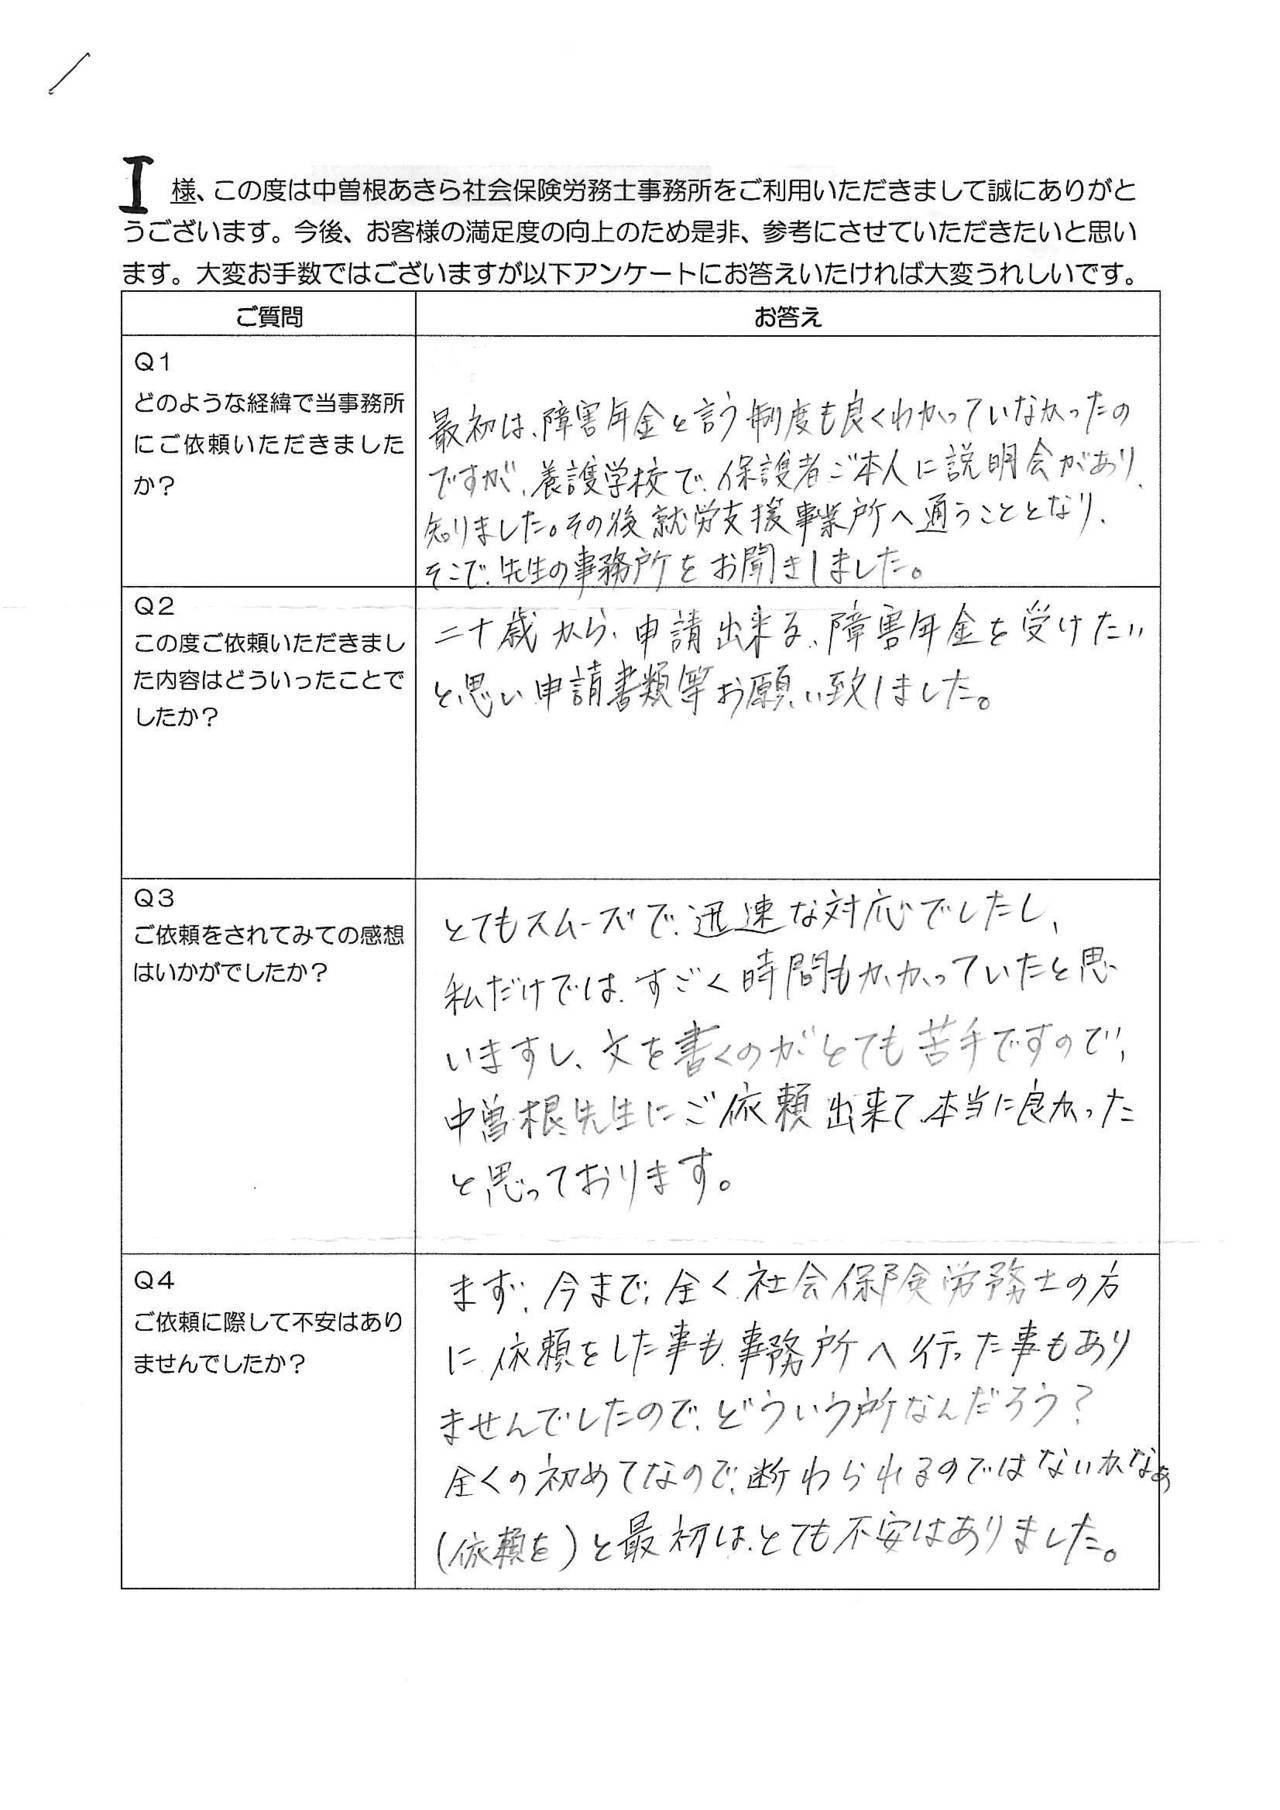 I 様、この度は中曽根あきら社会保険労務士事務所をご利用いただきまして誠にありがと
うございます。今後、お客様の満足度の向上のため是非、参考にさせていただきたいと思い
ます。大変お手数ではございますが以下アンケートにお答えいたければ大変うれしいです。
ご質問
お答え
Q1
どのような経緯で当事務所
にご依頼いただきました
か?
最初は、障害年金と言う制度も良くわかっていなかったの
ですが、養護学校で、保護者ご本人に説明会があり、
知りました。その後就労支援事業所へ通うこととなり、
そこで、先生の事務所をお聞きしました。
Q2
この度ご依頼いただきまし
た内容はどういったことで
したか?
二十歳から、申請出来る、障害年金を受けたい
と思い申請書類等お願い致しました。
Q3
ご依頼をされてみての感想
はいかがでしたか?
とてもスムーズで、迅速な対応でしたし、
私だけでは、すごく時間もかかっていたと思
いますし、文を書くのがとても苦手ですので、
中曽根先生にご依頼出来て、本当に良かった
と思っております。
Q4
ご依頼に際して不安はあり
ませんでしたか?
まず、今まで、全く社会保険労務士の方
に依頼をした事も、事務所へ行った事もあり
ませんでしたので、どういう所なんだろう?
全くの初めてなので、断わられるのではないかなぁ
(依頼を)と最初は、とても不安はありました。